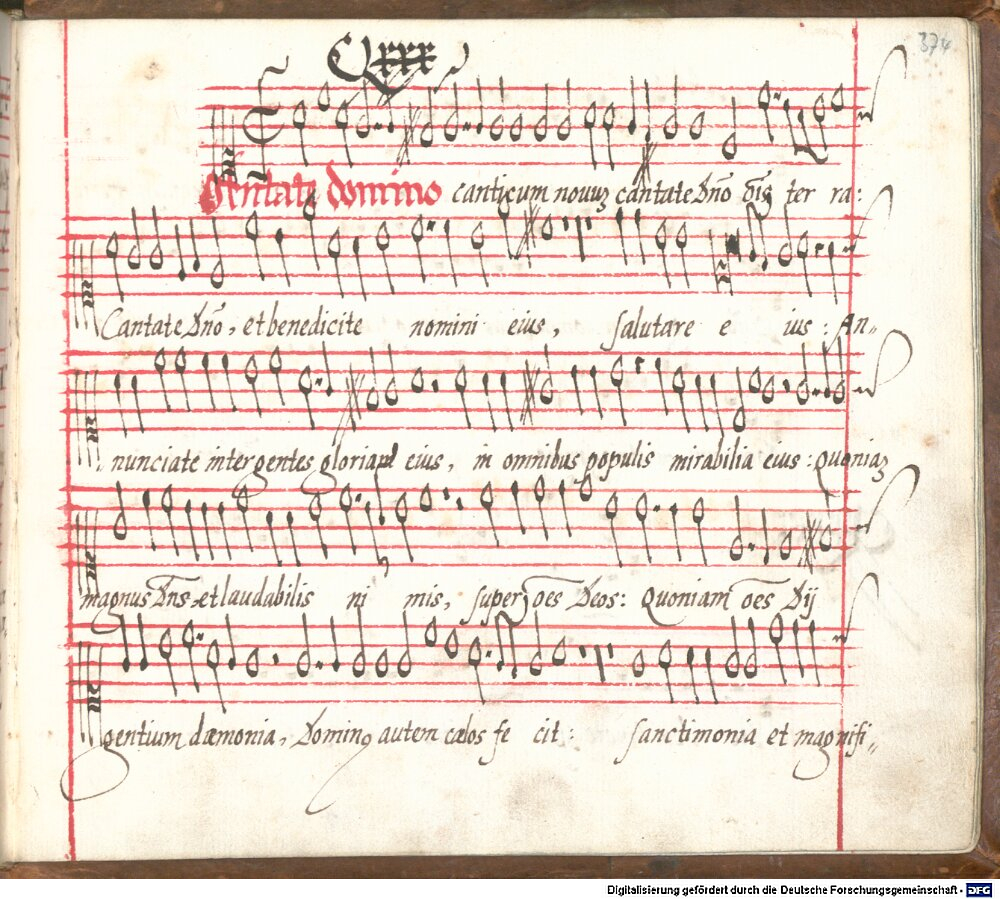 CLxxx
374
Cantate domino canticum nouuȝ cantate Dño oĩs ter ra:
Cantate Dño, et benedicite nomini eius, salutare e ius: An„
nunciate inter gentes gloriam eius, in omnibus populis mirabilia eius: Quoniaȝ
magnus Dñs et laudabilis ni mis, super oẽs Deos: Quoniam oẽs Dij
gentium dæmonia, Dominꝰ autem cælos fe cit: sanctimonia et magnifi„
Digitalisierung gefördert durch die Deutsche Forschungsgemeinschaft - DFG